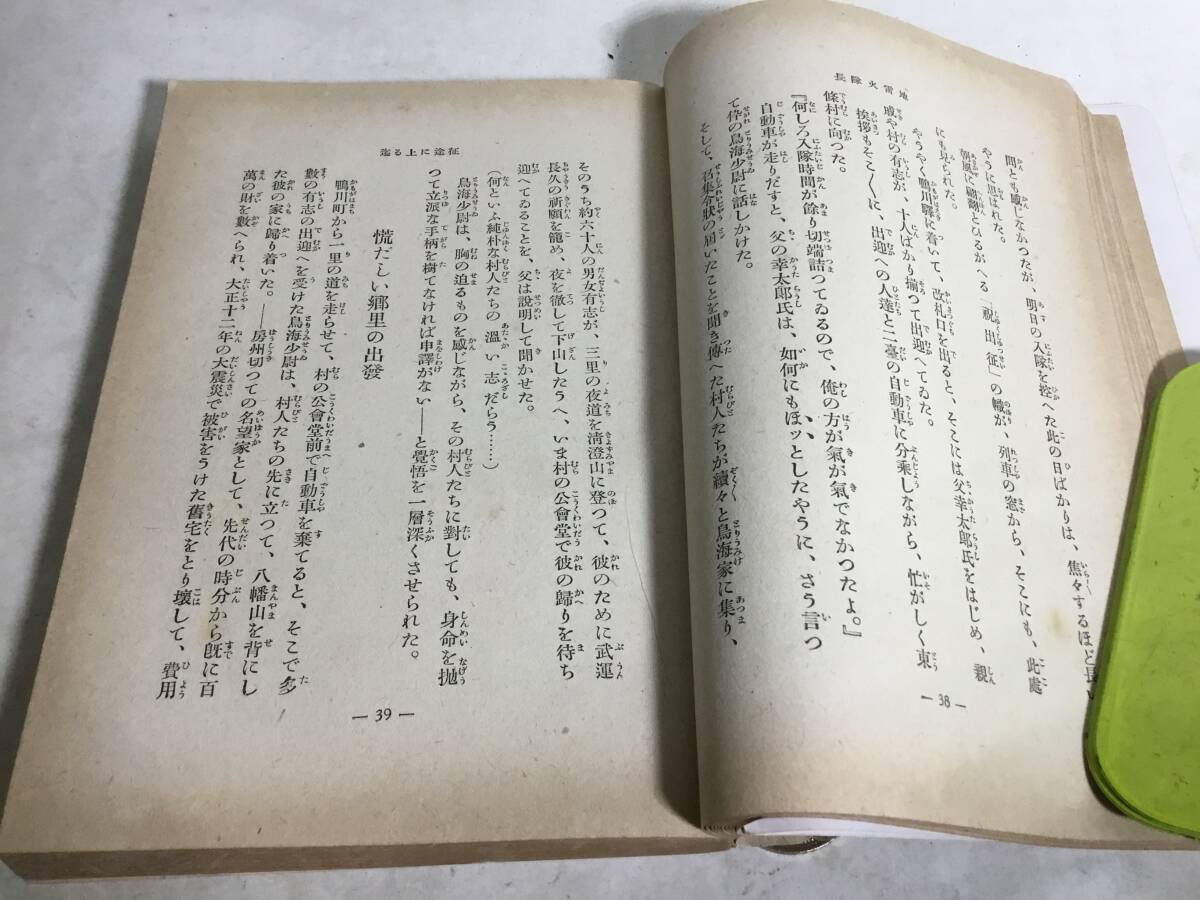 地雷火隊長
間とも感じなかつたが、明日の入隊を控へた此の日ばかりは、焦々するほど長い
やうに思はれた。
朝風に翩翻とひるがへる「祝出征」の幟が、列車の窓から、そこにも、此處
にも見られた。
やうやく鴨川驛に着いて、改札口を出ると、そこには父幸太郎氏をはじめ、親
戚や村の有志が、十人ばかり揃つて出迎へてゐた。
挨拶もそこ〳〵に、出迎への人達と二臺の自動車に分乘しながら、忙がしく東
條村に向つた。
『何しろ入隊時間が餘り切端詰つてゐるので、俺の方が氣が氣でなかつたよ。』
自動車が走りだすと、父の幸太郎氏は、如何にもほッとしたやうに、さう言つ
て倅の鳥海少尉に話しかけた。
そして、召集令狀の屆いたことを聞き傳へた村人たちが續々と鳥海家に集り、
— 38 —
征途に上る迄
そのうち約六十人の男女有志が、三里の夜道を淸澄山に登つて、彼のために武運
長久の祈願を籠め、夜を徹して下山したうへ、いま村の公會堂で彼の歸りを待ち
迎へてゐることを、父は說明して聞かせた。
(何といふ純朴な村人たちの溫い志だらう……)
鳥海少尉は、胸の迫るものを感じながら、その村人たちに對しても、身命を抛
つて立派な手柄を樹てなければ申譯がない——と覺悟を一層深くさせられた。
慌だしい鄕里の出發
鴨川町から一里の道を走らせて、村の公會堂前で自動車を棄てると、そこで多
數の有志の出迎へを受けた鳥海少尉は、村人たちの先に立つて、八幡山を背にし
た彼の家に歸り着いた。——房州切つての名望家として、先代の時分から旣に百
萬の財を數へられ、大正十二年の大震災で被害をうけた舊宅をとり壞して、費用
— 39 —